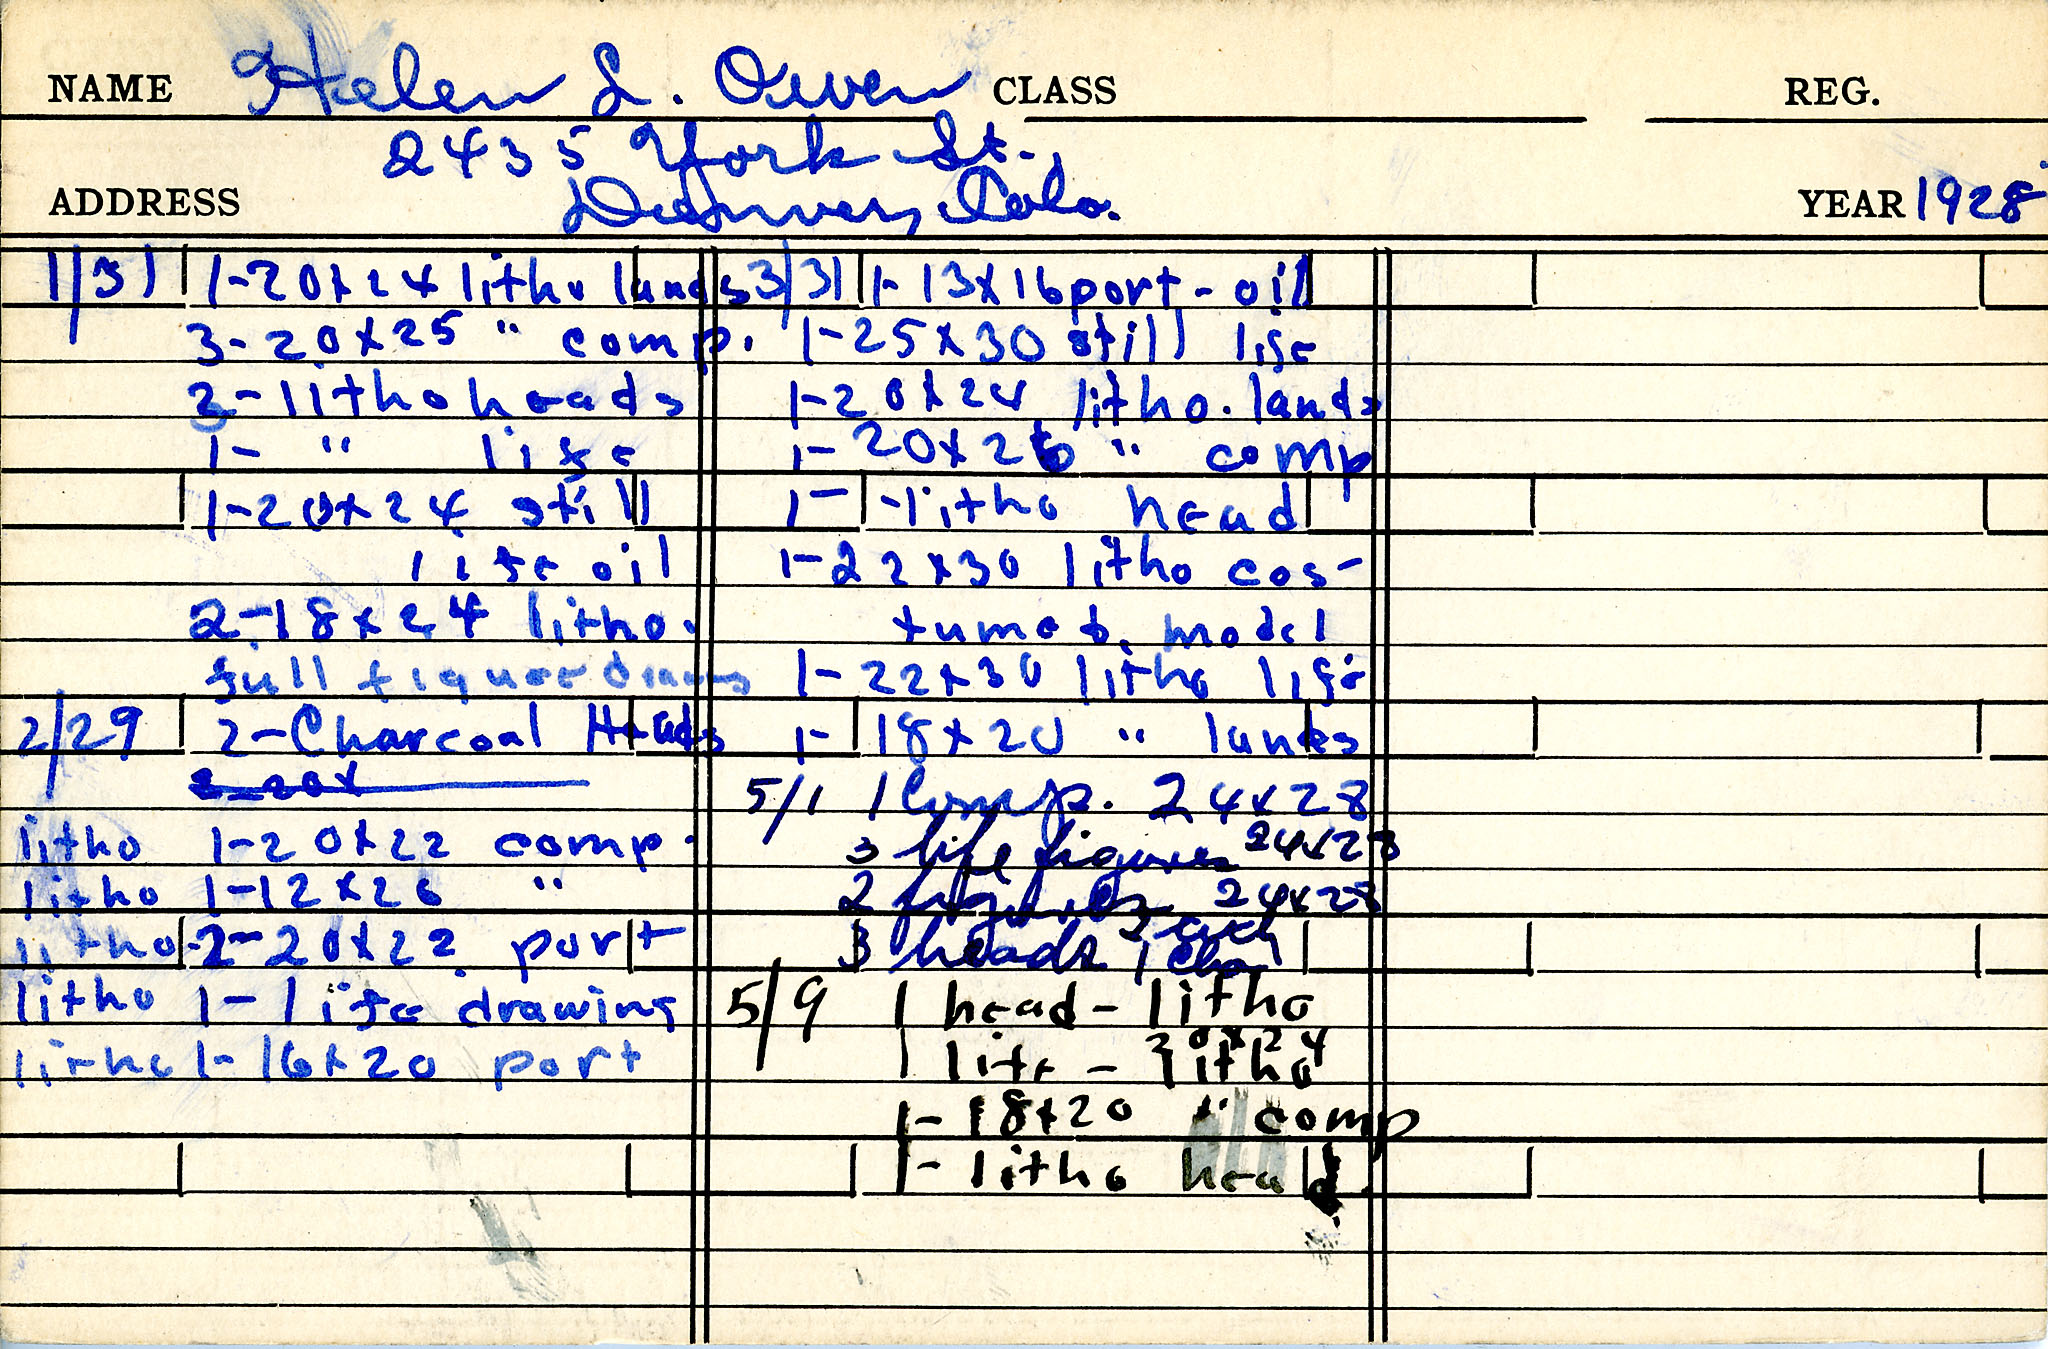 NAME Helen L. Owen CLASS REG.
2435 York St.
ADDRESS Denver, Colo. YEAR 1928
1/31 1-20x24 litho lands
3-20x25 " comp.
2-litho heads
1- " life
1-20x24 still
life oil
2-18x24 litho.
full figure draws
2/29 2-Charcoal Heads
2-20x
litho 1-20x22 comp.
litho 1-12x26 "
litho 2-20x22 port
litho 1-life drawing
litho 1-16x20 port
3/31 1-13x16 port-oil
1-25x30 still life
1-20x24 litho. lands
1-20x26 " comp
1- -litho head
1-22x30 litho cos-
tumed. model
1-22x30 litho life
1- 18x20 " lands
5/1 1 Comp. 24x28
3 life figures 24x28
2 figures 24x28
3 heads 2 each 1 char
5/9 1 head-litho
20x24
1 life - litho
1-18x20 " comp
1-litho head.